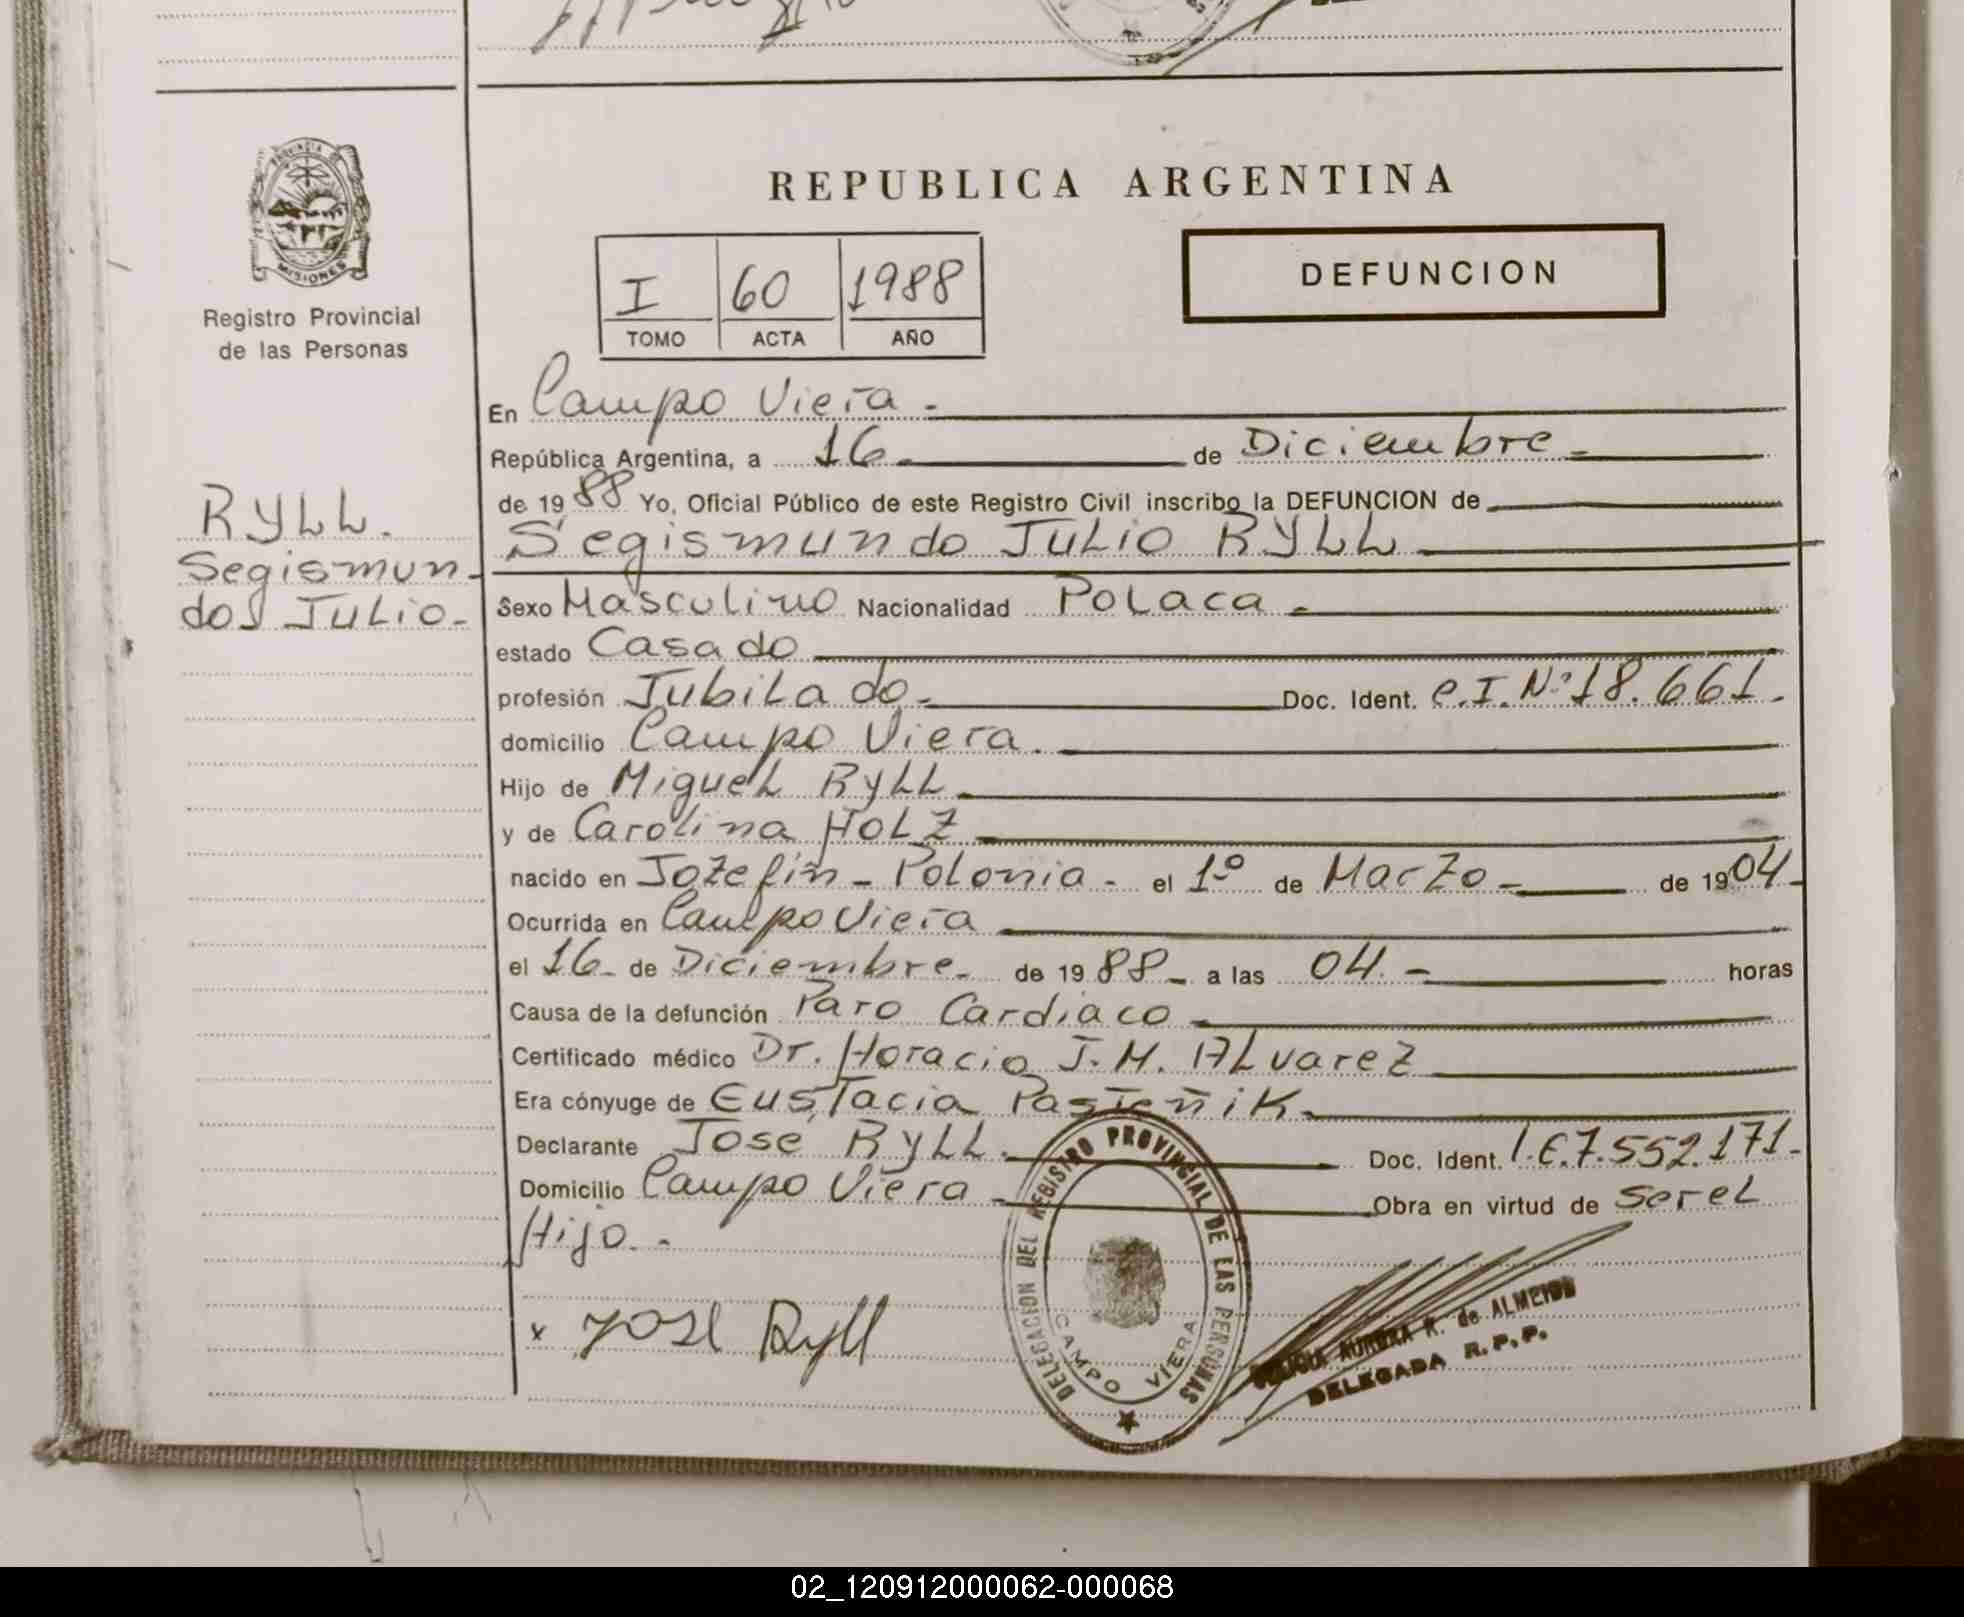 REPUBLICA ARGENTINA
PROVINCIA DE
MISIONES
Registro Provincial
de las Personas
DEFUNCION
I 60 1988
TOMO ACTA AÑO
En Campo Viera -
República Argentina, a 16 - de Diciembre -
de 1988 Yo, Oficial Público de este Registro Civil inscribo la DEFUNCION de
Segismundo Julio RYLL
RYLL.
Segismun-
do Julio-
Sexo Masculino Nacionalidad Polaca -
estado Casado
profesión Jubilado - Doc. Ident. C.I. Nº 18.661.-
domicilio Campo Viera.
Hijo de Miguel RYLL
y de Carolina HOLZ
nacido en Jozefin - Polonia - el 1º de Marzo - de 1904-
Ocurrida en Campo Viera
el 16 - de Diciembre - de 1988 - a las 04. - horas
Causa de la defunción Paro Cardiaco
Certificado médico Dr. Horacio J.M. Alvarez
Era cónyuge de Eustacia Pasteñik
Declarante José RYLL. Doc. Ident. L.E.7.552.171.-
Domicilio Campo Viera - Obra en virtud de serel
Hijo. -
x José Ryll
DELEGACION DEL REGISTRO PROVINCIAL DE LAS PERSONAS
CAMPO VIERA
AURORA R. de ALMEIDA
DELEGADA R.P.P.
02_120912000062-000068